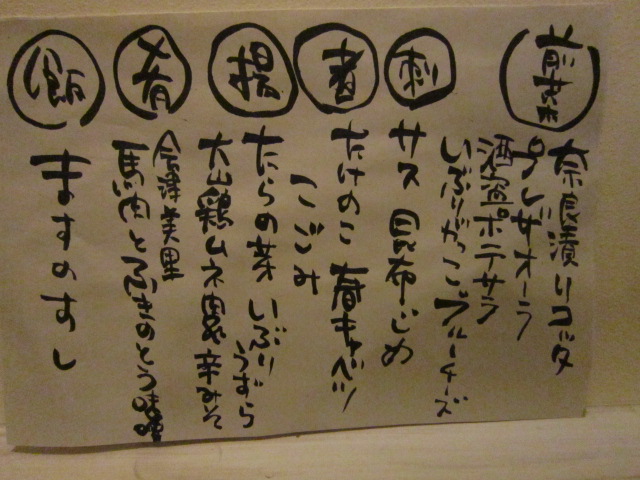 前菜
奈良漬リコッタ
ブレザオーラ
酒盗ポテサラ
いぶりがっこブルーチーズ
刺
サス 昆布じめ
煮
たけのこ 春キャベツ
こごみ
揚
たらの芽 いぶりうずら
大山鶏ムネ 辛みそ
肴
会津美里
馬肉とふきのとう味噌
飯
ますのすし